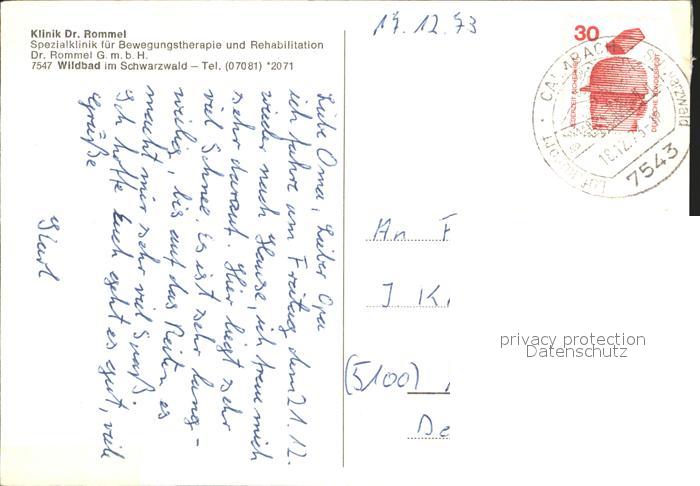 Klinik Dr. Rommel
Spezialklinik für Bewegungstherapie und Rehabilitation
Dr. Rommel G.m.b.H.
7547 Wildbad im Schwarzwald – Tel. (07081) *2071
Liebe Oma, Lieber Opa
ich fahre am Freitag dem 21.12.
wieder nach Hause, ich freue mich
sehr darauf. Hier liegt sehr
viel Schnee. Es ist sehr lang-
weilig, bis auf das Reiten es
macht mir sehr viel Spaß.
Ich hoffe Euch geht es gut, viele
Grüße
17.12.73
30
DEUTSCHE BUNDESPOST
CALMBACH
Schwarzwald
Luftkurort
18.12.73
7543
An F
J K.
(5100)
De
privacy protection
Datenschutz